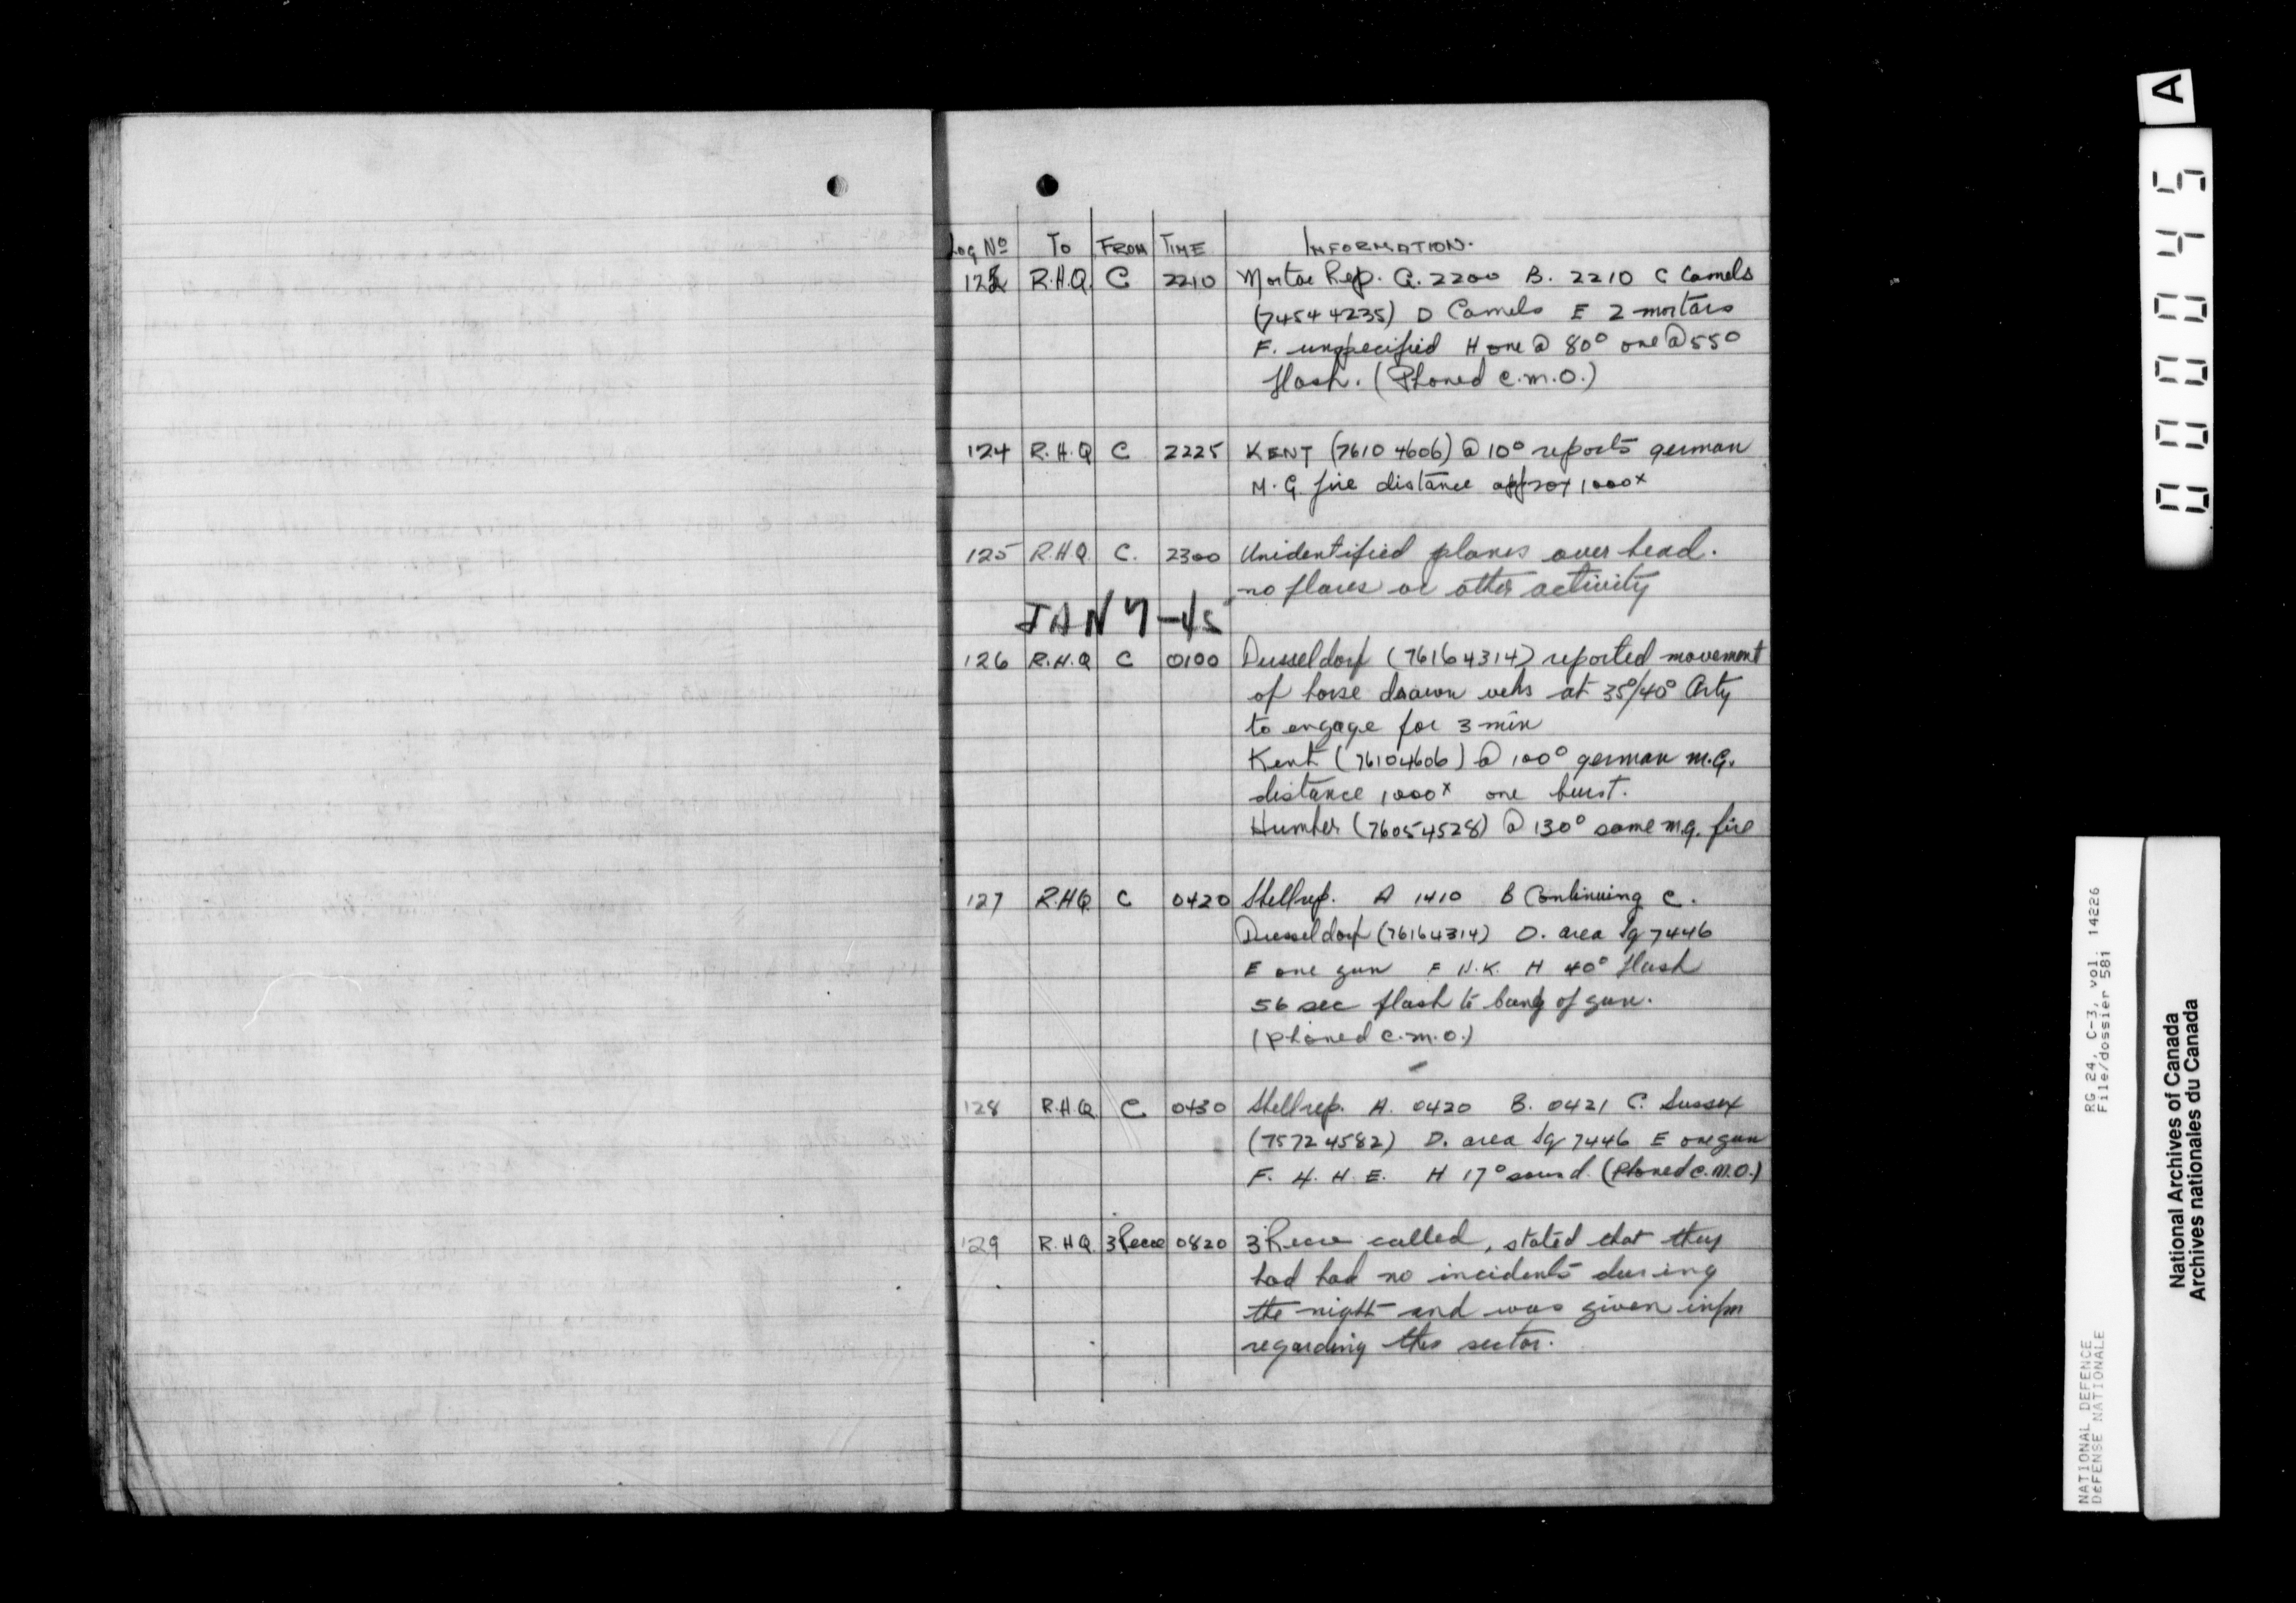 Log No To From Time Information.
123 R.H.Q. C 2210 Mortar Rep. A. 2200 B. 2210 C Camels
(74544235) D Camels E 2 mortars
F. unspecified H one @ 80° one @ 55°
flash. (Phoned C.M.O.)
124 R.H.Q C 2225 KENT (7610 4606) @ 10° reports german
M.G fire distance approx 1000x
125 R.H.Q. C. 2300 Unidentified planes over head.
no flares or other activity
JAN 7-45
126 R.H.Q C 0100 Dusseldorf (76164314) reported movement
of horse drawn vehs at 35°/40° Arty
to engage for 3 min
Kent (76104606) @ 100° german m.g.
distance 1000x one burst.
Humber (76054528) @ 130° same m.g. fire
127 R.HQ. C 0420 Shellrep. A 1410 B Continuing C.
Dusseldorf (76164314) D. area Sq 7446
E one gun F N.K. H 40° flash
56 sec flash to bang of gun.
(phoned C.m.o.)
128 R.H.Q. C 0430 Shellrep. A. 0420 B. 0421 C. Sussex
(75724582) D. area Sq 7446 E one gun
F. 4. H. E. H 17° sound. (Phoned C.M.O.)
129 R.HQ. 3 Recce 0820 3 Recce called, stated that they
had had no incidents during
the night and was given infm
regarding this sector.
A
000045
RG 24, C-3, vol. 14226
File/dossier 581
NATIONAL DEFENCE
DEFENSE NATIONALE
National Archives of Canada
Archives nationales du Canada